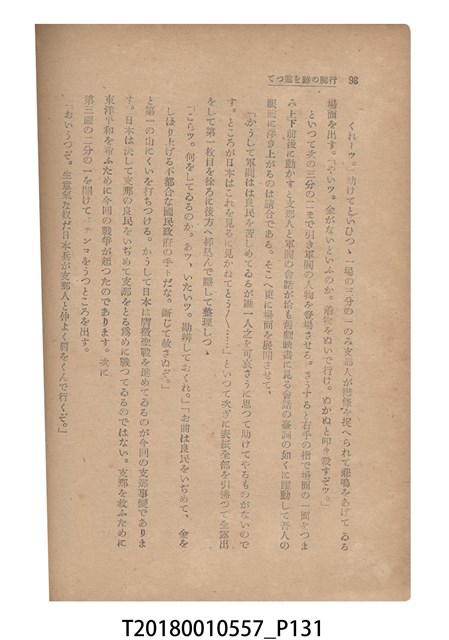 98 行脚の跡を つて
くれーッ。助けてといひつゝ一場の三分の一のみ支那人が を捉へられて悲鳴をあげてゐる
場面を出す。「やいッ。金がないといふのか。着物をぬいで行け。ぬかぬと叩き殺すぞッ。」
といつて次の三分の二まで引き軍閥の人物を登場させる。さうすると右手の指で場面の一面をつま
み上下前後に動かすと支那人と軍閥の會話が恰も舊劇映畫に見る會話の臺詞の如くに躍動して吾人の
眼前に浮き上がるのは請合である。そこへ更に場面を展開させて、
「かうして軍閥はは良民を苦しめてゐるが誰一人之を可哀さうに思つて助けてやるものがないので
す。ところが日本はこれを見るに見かねてとう〳〵……」といつて次ぎに表紙全部を引拂つて全露出
をして第一枚目を徐ろに後方へ挿込んで隱して整理しつゝ
「こらッ。何をしてゐるのか。あッ、いたいッ。勘辨しておくれ。」「お前は良民をいぢめて、金を
しぼり上げる不都合な國民政府の手下だな。斷じて赦さぬぞ。」
と第一の山にくいを打ちつける。かうして日本は膺懲聖戰を進めてゐるのが今囘の支那事變でありま
す。日本は決して支那の良民をいぢめて支那をとる爲めに戰つてゐるのではない。支那を救ふために
東洋平和を希ふために今囘の戰爭が起つたのであります。次に
第三圖の二分の一を開けてパチンコをうつところを出す。
「おいうつぞ。生意氣な奴だ日本兵が支那人と仲よく肩をくんで行くぞ。」
T20180010557_P131